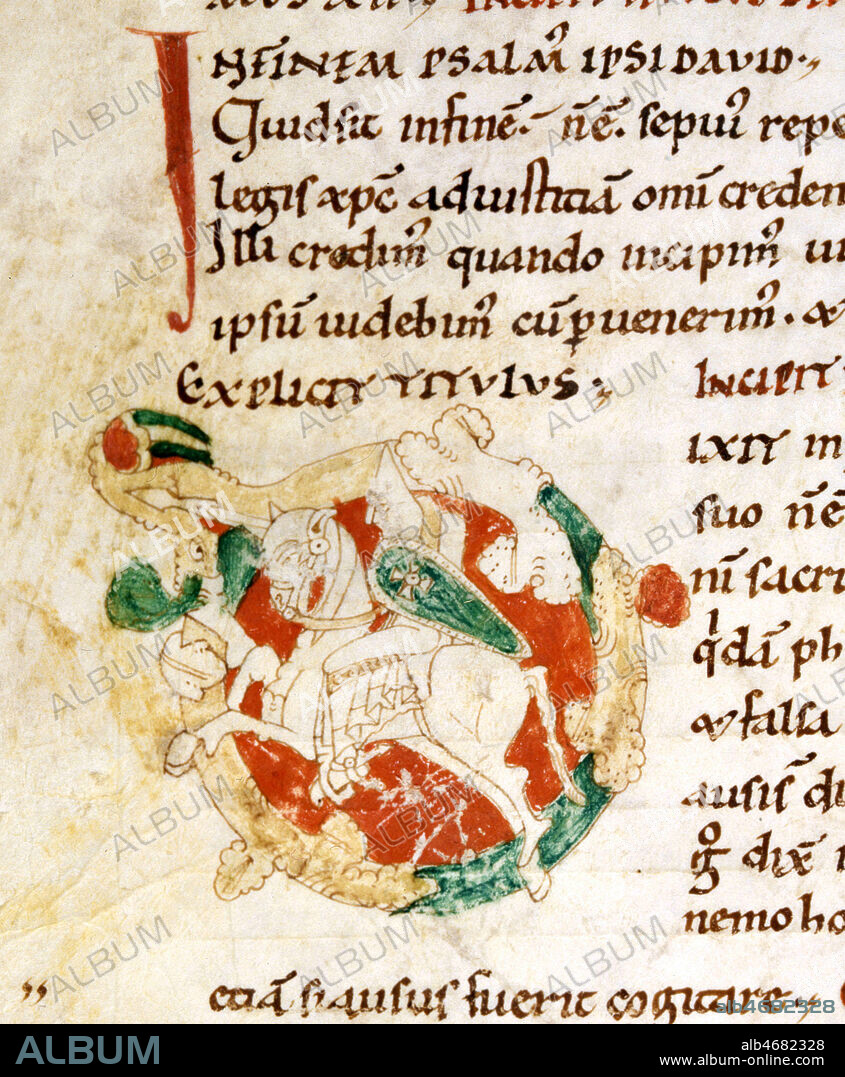 INFINEM PSALM' IPSI DAVID.
Quid sit infinē. nē. sepiu' repe
legis ē xp̄c adiustitiā omi creden
Illi credim' quando incipim'
ipsū uidebim' cū puenerim'. &
EXPLICIT TITULUS;
INCIPIT
IXIT in
suo nē
ni sacri
qdā ph
& falsa
ausis d
dix̄
nemo ho
etiā hausus fuerit cogitare
ALBUM
alb4682328
ALBUM
alb4682328
www.album-online.com